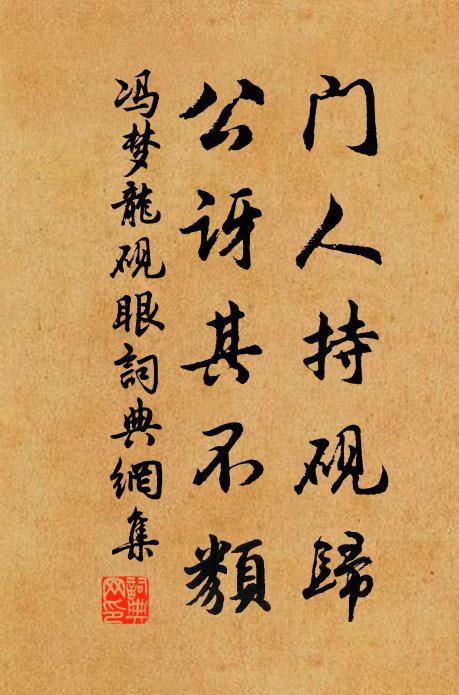 门人持砚歸
公讶其不類
冯梦龍砚眼詞典網集
詞典网印